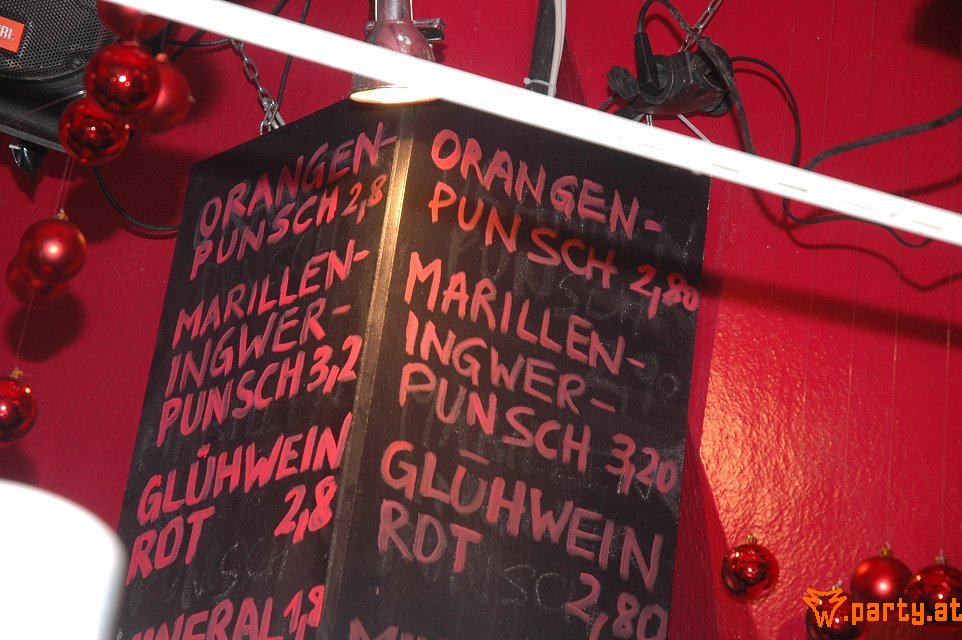 ORANGEN-
PUNSCH 2,8
MARILLEN-
INGWER-
PUNSCH 3,2
GLÜHWEIN
ROT 2,8
MINERAL 1,8
ORANGEN-
PUNSCH 2,80
MARILLEN-
INGWER-
PUNSCH 3,20
GLÜHWEIN
ROT 2,80
w.party.at